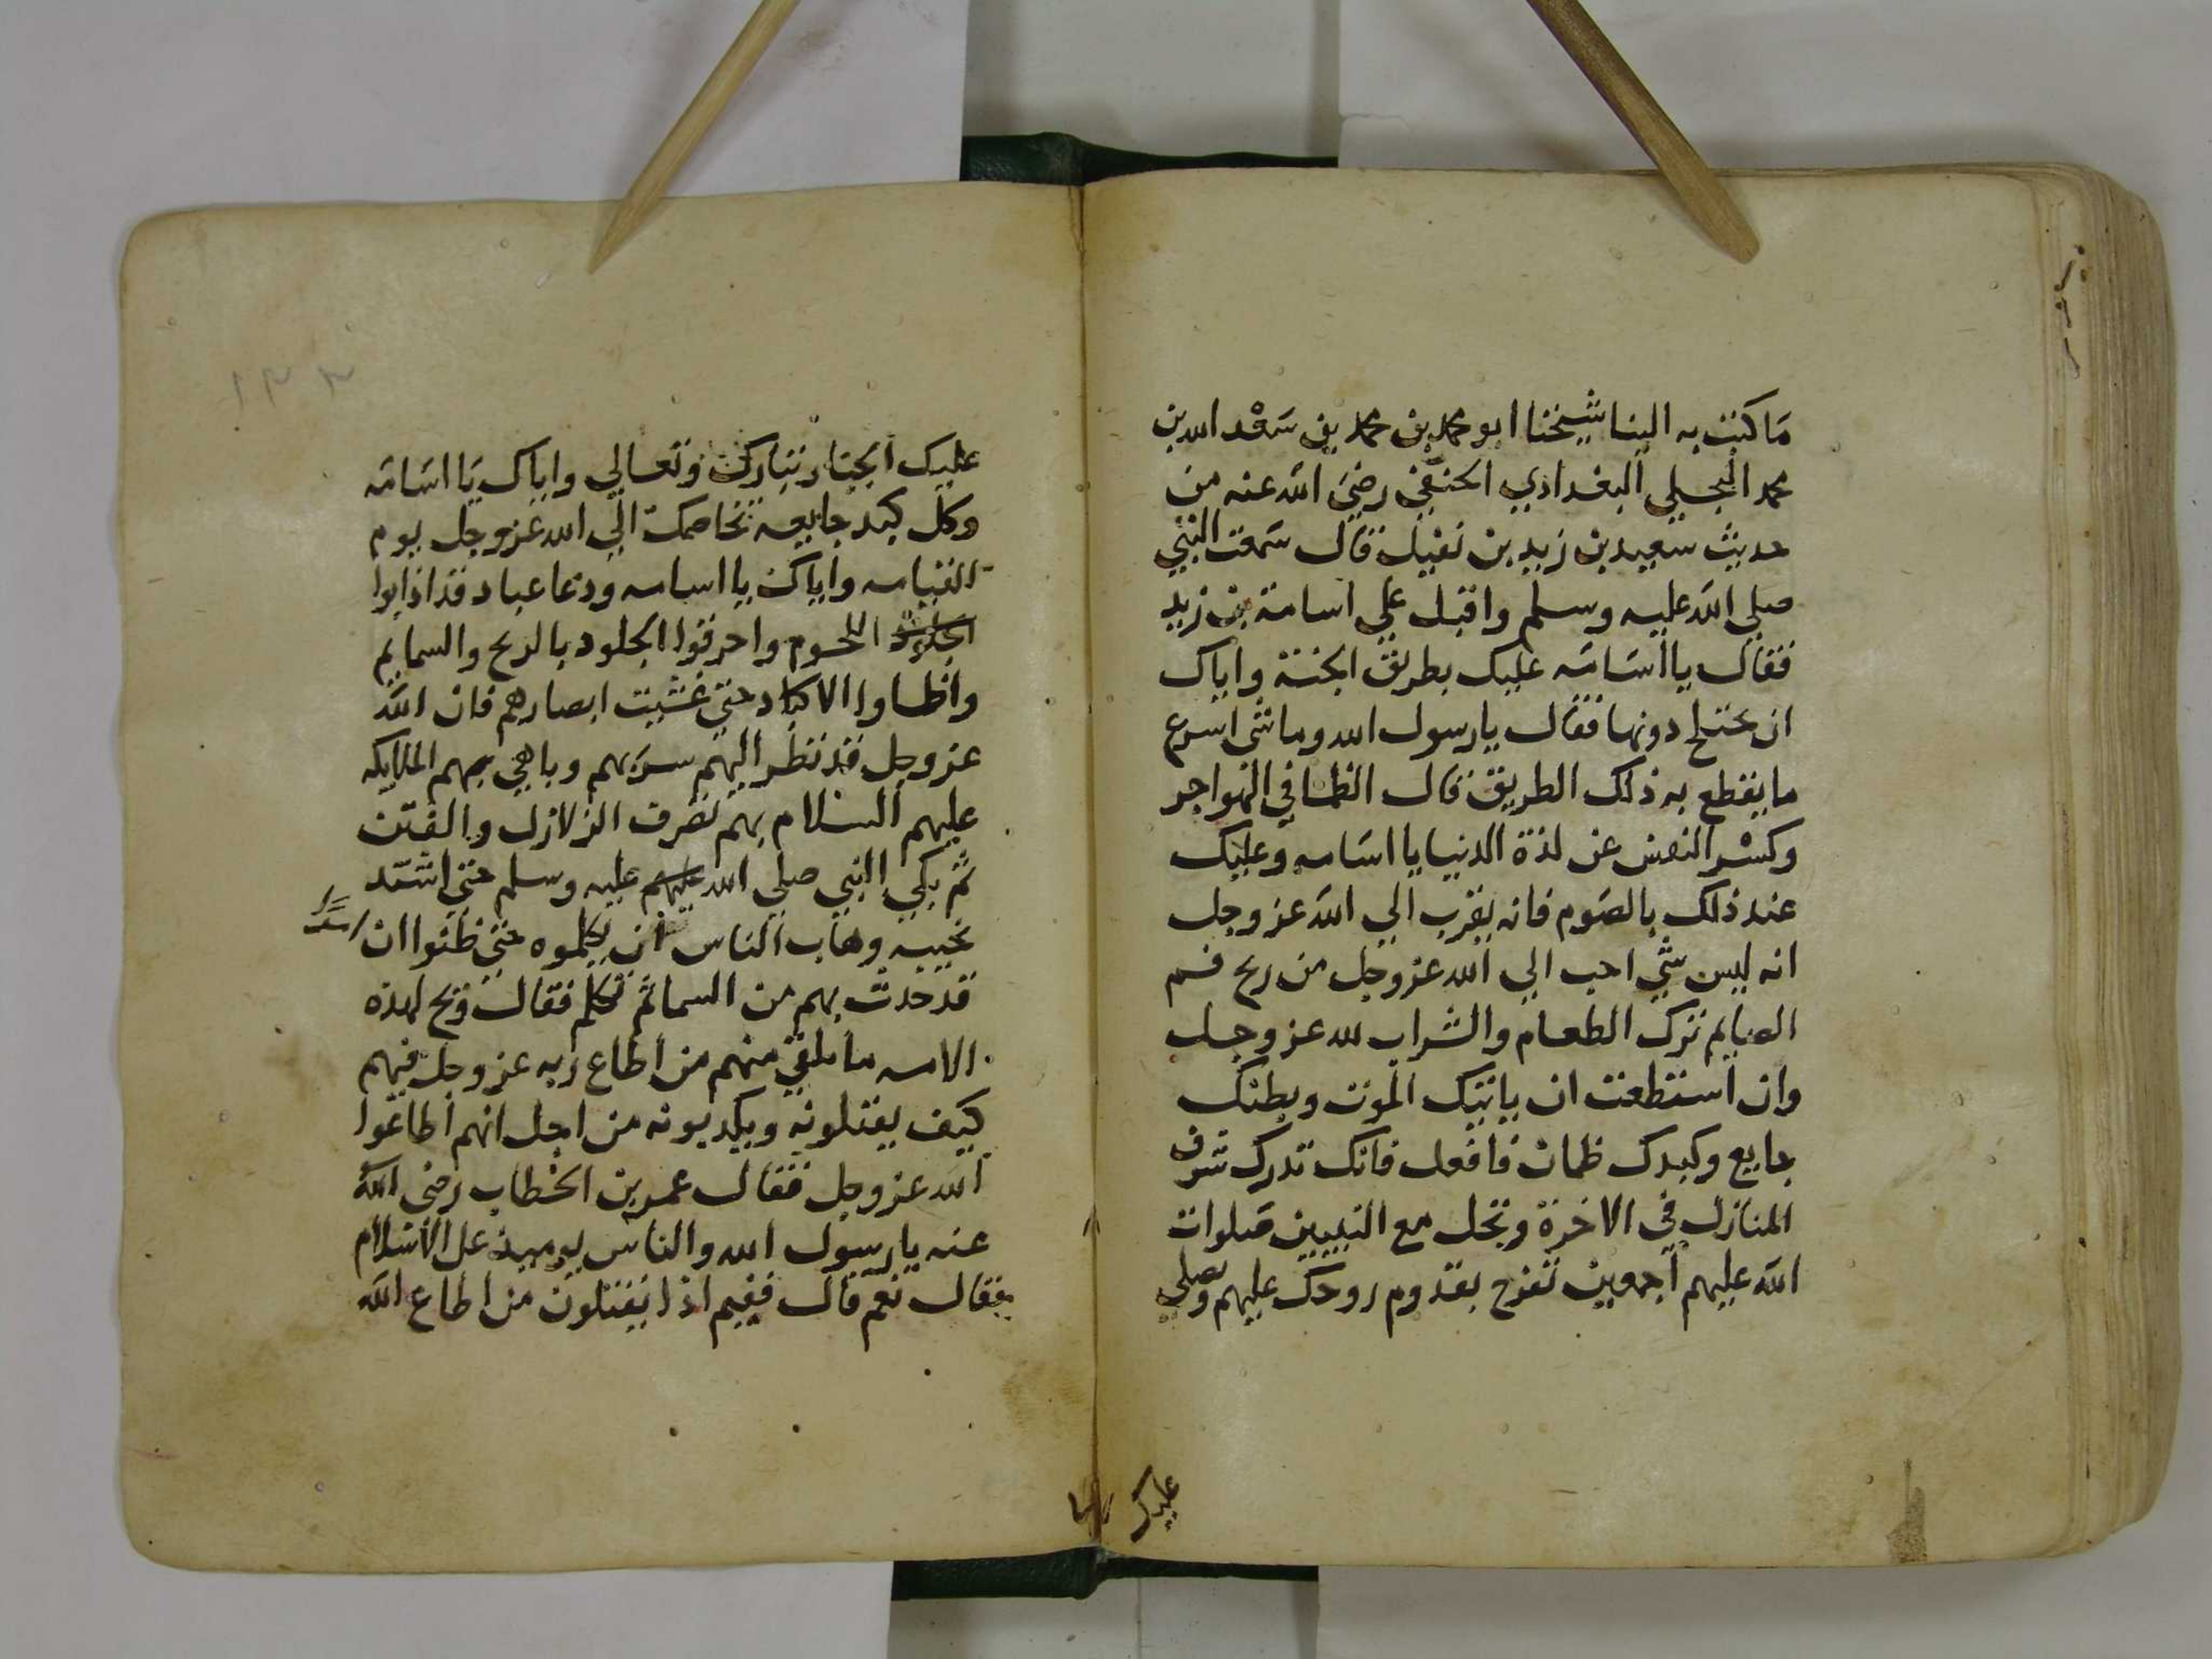 ما كتب به الينا شيخنا ابو محمد بن محمد بن سعد الله بن
محمد البجيلي البغدادي الحنفي رضي الله عنه من
حديث سعيد بن زيد بن نفيل قال سمعت النبي
صلي الله عليه وسلم واقبل علي اسامة بن زيد
فقال يا اسامه عليك بطريق الجنة واياك
ان تختلج دونها فقال يا رسول الله وما شي اسرع
ما يقطع به ذلك الطريق قال الظما في الهواجر
وكسر النفس عن لذة الدنيا يا اسامه وعليك
عند ذلك بالصوم فانه يقرب الي الله عز وجل
انه ليس شي احب الي الله عز وجل من ريح فم
الصايم ترك الطعام والشراب لله عز وجل
وان استطعت ان ياتيك الموت وبطنك
جايع وكبدك ظمان فافعل فانك تدرك شرف
المنازل في الاخرة وتحل مع النبيين صلوات
الله عليهم اجمعين تفرح بقدوم روحك عليهم وصلي
عليك
١٣٣
عليك الجبار تبارك وتعالي واياك يا اسامه
وكل كبد جايعه تخاصمك الي الله عز وجل يوم
القيامه واياك يا اسامه ودعا عباد قد اذابوا
الجلود اللحوم واحرقوا الجلود بالريح والسمايم
واظماوا الاكباد حتي غشيت ابصارهم فان الله
عز وجل قد نظر اليهم سر بهم وباهي بهم الملايكه
عليهم السلام بهم تصرف الزلازل والفتن
ثم بكي النبي صلي الله عليهم عليه وسلم حتي اشتد
نحيبه وهاب الناس ان يكلموه حتي ظنوا ان
قد حدث بهم من السما ثم تكلم فقال ويح لهذه
الامه ما يلقي منهم من اطاع ربه عز وجل فيهم
كيف يقتلونه ويكذبونه من اجل انهم اطاعوا
الله عز وجل فقال عمر بن الخطاب رضي الله
عنه يا رسول الله والناس يوميذ عل الاسلام
فقال نعم قال ففيم اذا يقتلون من اطاع الله